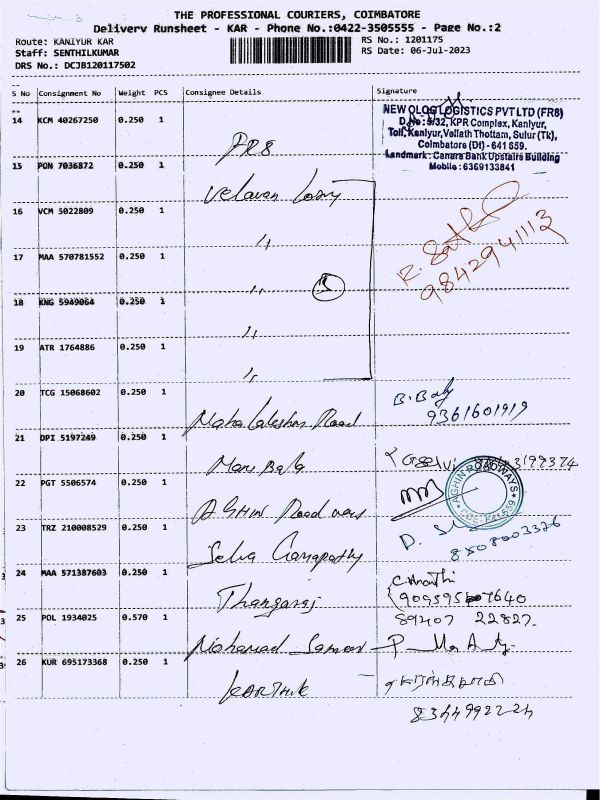 THE PROFESSIONAL COURIERS, COIMBATORE
Delivery Runsheet - KAR - Phone No.:0422-3505555 - Page No.:2
Route: KANIYUR KAR
RS No.: 1201175
Staff: SENTHILKUMAR
RS Date: 06-Jul-2023
DRS No.: DCJB120117502
S No Consignment No Weight PCS Consignee Details Signature
14 KCM 40267250 0.250 1
FR8
NEW OLOGLOGISTICS PVT LTD (FR8)
D.No : 5/32, KPR Complex, Kaniyur,
Toll, Kaniyur, Vellath Thottam, Sulur (Tk),
Coimbatore (Dt) - 641 659.
Landmark : Canara Bank Upstairs Building
Mobile : 6369133841
15 PON 7036872 0.250 1
Velavan Lorry
16 VCM 5022809 0.250 1
"
17 MAA 570781552 0.250 1
"
18 KNG 5949064 0.250 1
"
R.
9842941113
19 ATR 1764886 0.250 1
"
20 TCG 15068602 0.250 1
Road
B. Baby
9361601919
21 DPI 5197249 0.250 1
Mani Bala
22 PGT 5506574 0.250 1
AGHIN Road ways
AGHIN ROADWAYS
23 TRZ 210008529 0.250 1
Selva Ganapathy
D.
8508003326
24 MAA 571387603 0.250 1
Thangaraj
7640
25 POL 1934025 0.570 1
Mohamad
89407 22827
P.
26 KUR 695173368 0.250 1
KARTHIK
8344992224